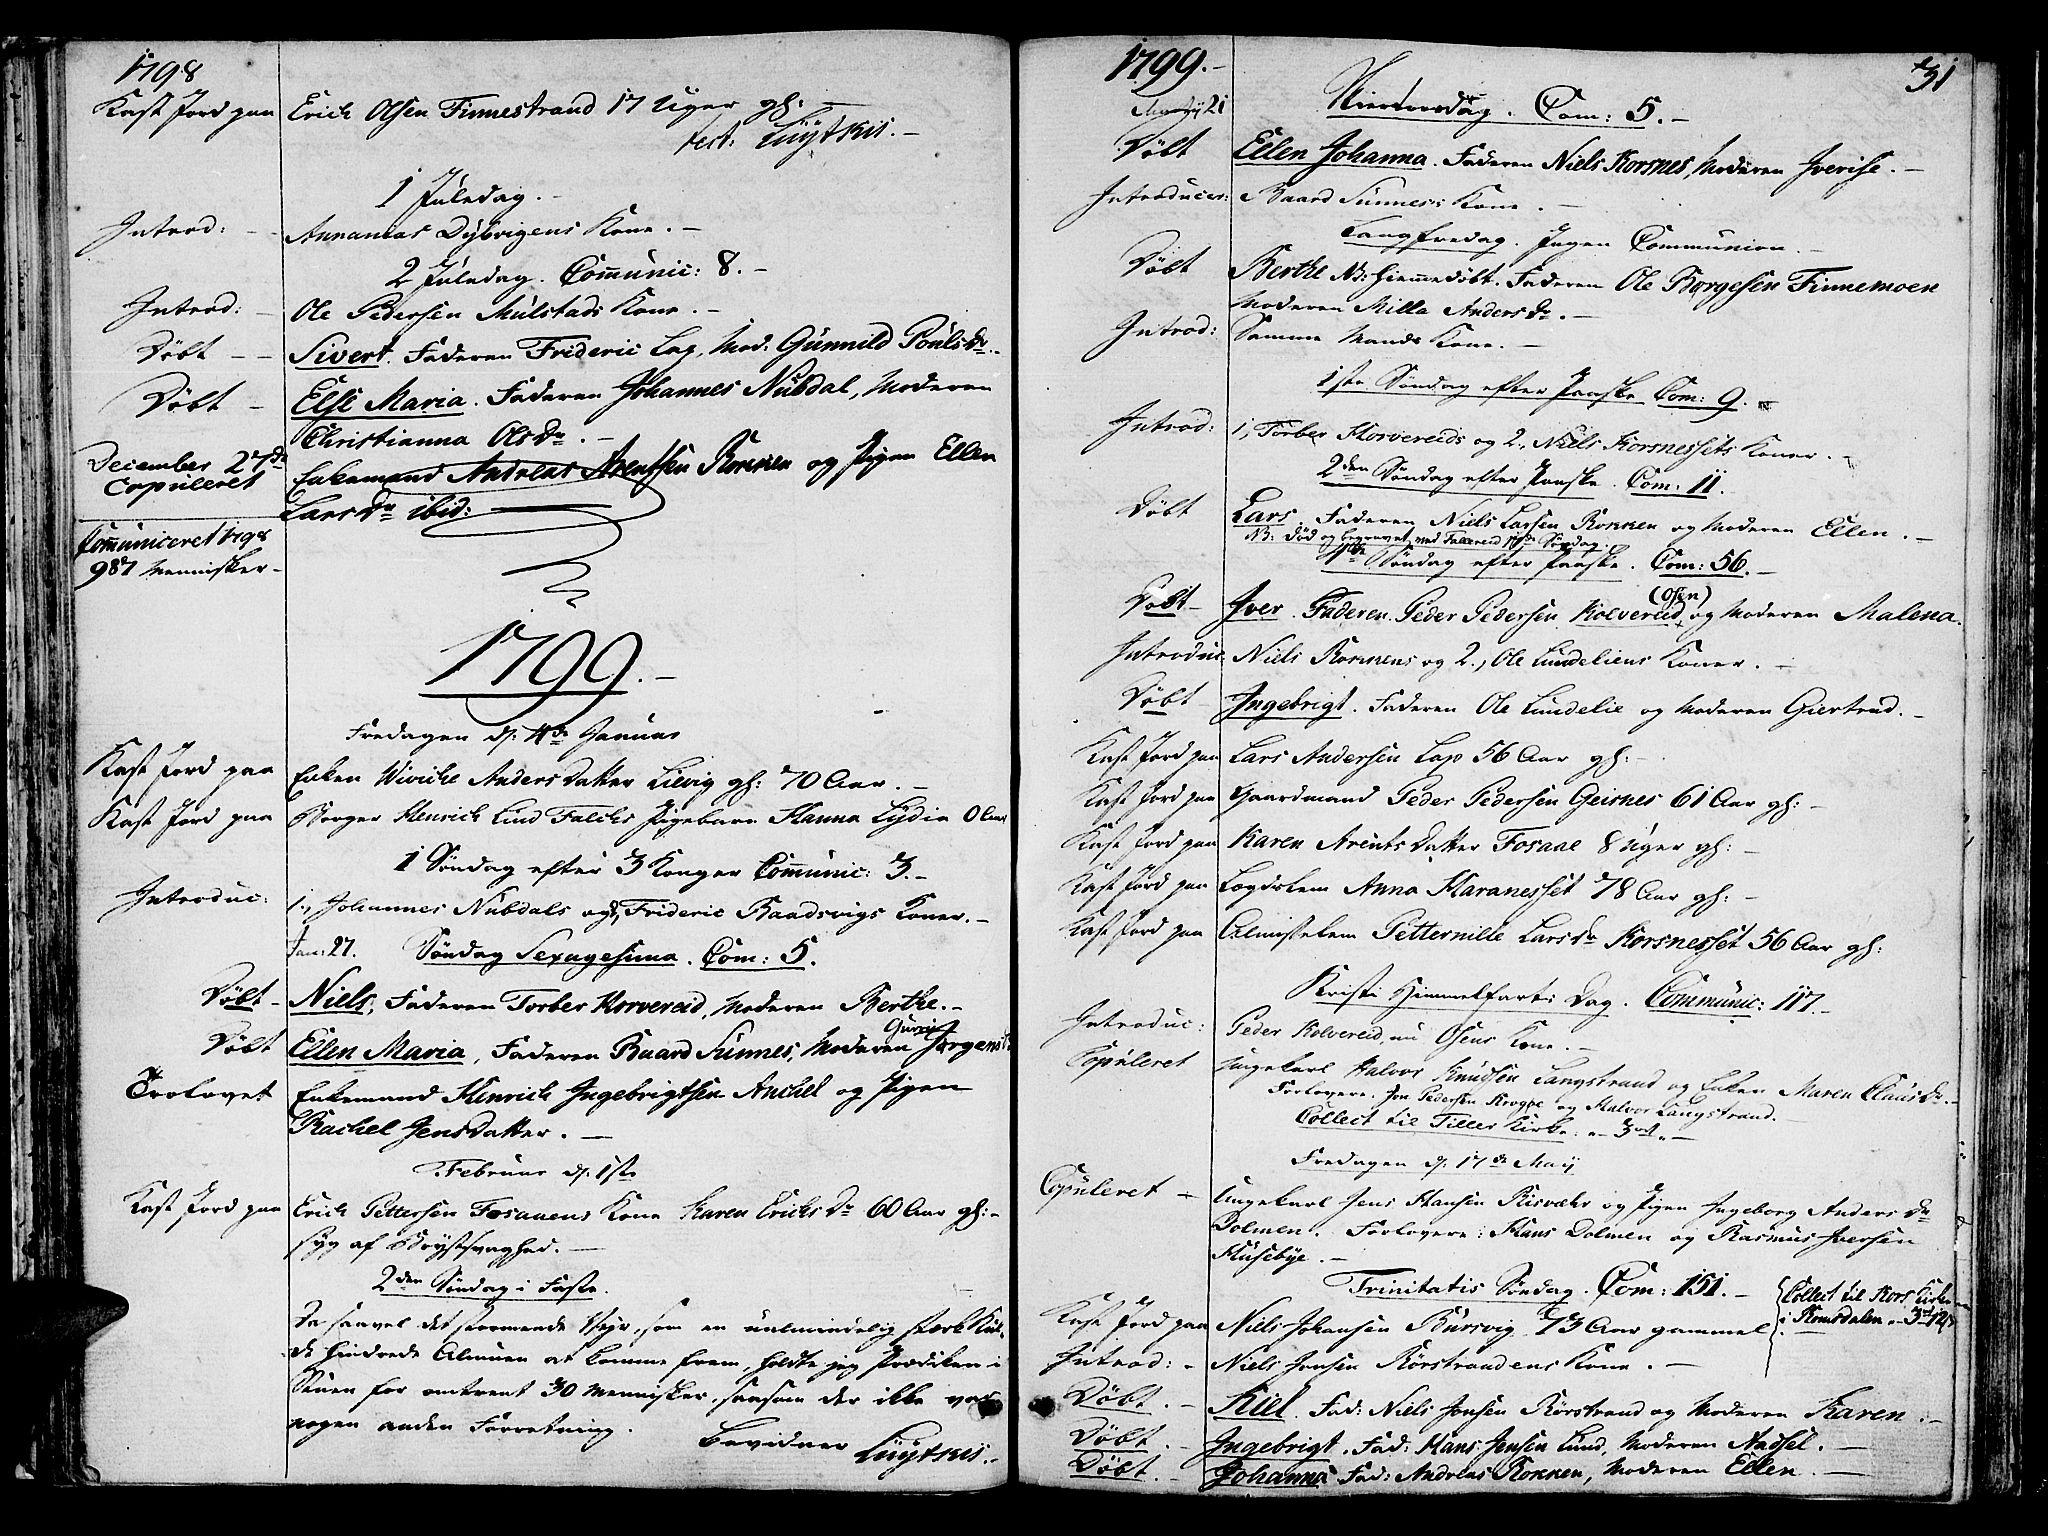 1798
Kast Jord paa Erich Olsen Finnestrand 17 Uger gl:
test: Lüytkis.-
1 Juledag.-
Introd: Annanias Dybvigens Kone.-
2 Juledag. Com̄unic: 8.-
Introd: Ole Pedersen Mulstads Kone.-
Døbt Sivert. Faderen Frideric Lag, Mod: Gunnild Poulsdr.-
Døbt Else Maria. Faderen Johannes Nubdal, Moderen
Christianna Olsdr.-
December 27de Enkemand Andreas Arentsen Ronnen og Pigen Ellen
Copuleret Larsdr ibid:
Com̄uniceret 1798
987 Mennisker-
1799.-
Fredagen d: 4de Januar
Kast Jord paa Enken Wiviche Andersdatter Lilvig gl: 70 Aar.-
Kast Jord paa Borger Henrich Lind Falchs Pigebarn Hanna Lydia
1 Søndag efter 3 Konger Com̄unic: 3.-
Introduc: 1., Johannes Nubdals og 2, Frideric Raadsvigs Koner.-
Jan: 27. Søndag Sexagesima. Com: 5.
Døbt- Niels, Faderen Torber Horvereid, Moderen Berthe.-
Døbt Ellen Maria, Faderen Baard Sünnes, Moderen Gurri Jørgensdr
Trolovet Enkemand Henrich Ingebrigtsen Anchel og Pigen
Rachel Jensdatter.-
Februar d: 1ste
Kast Jord paa Erich Pettersen Fosaaens Kone Karen Erichsdr 60 Aar gl:-
syg af Brystsvaghed.-
2den Søndag i Faste.
Da saavel det stormende Vejr, som en ualmindelig stærk Kul-
de hindrede Almuen at komme frem, holdte jeg Prædiken i
Stuen for omtrent 30 Mennisker, saasom der ikke var
nogen anden Forretning.
bevidner Lüytkis.-
1799.-
31
21 Skiertorsdag. Com: 5.-
Døbt Ellen Johanna. Faderen Niels Korsnes, Moderen Iverise.-
Introducer: Baard Sünnes's Kone.-
Langfredag. Ingen Communion.-
Døbt Berthe NB: hiemmedøbt. Faderen Ole Borgesen Finnemoen
Moderen Milla Andersdr.-
Introd: Samme Mands Kone.-
1ste Søndag efter Paaske Com: 9.
Introd: 1, Torber Horvereids og 2., Niels Korsnessets Koner.-
2den Søndag efter Paaske. Com: 11.
Døbt Lars. Faderen Niels Larsen Ronnen og Moderen Ellen.-
NB: død og begravet ved Søndag.
4de Søndag efter Paaske. Com: 56.-
(Osen)
Døbt- Iver. Faderen. Peder Pedersen Kolvereid og Moderen Malena.
Introduc: Niels Ronnens og 2., Ole Lundeliens Koner.-
Døbt Ingebrigt. Faderen Ole Lundelie og Moderen Giertrud.-
Kast Jord paa Lars Andersen Lap 56 Aar gl:-
Kast Jord paa Gaardmand Peder Pedersen Geisnes 61 Aar gl:-
Kast Jord paa Karen Arentsdatter Fosaae 8 Uger gl:-
Kast Jord paa Lægdslem Anna Haranesset 78 Aar gl:-
Kast Jord paa Almisselem Petternille Larsdr Korsnesset 56 Aar gl:
Kristi Himmelfarts Dag. Communic: 117.-
Introduc: Peder Kolvereid, nu Osens Kone.-
Copuleret Ungekarl Halvor Knudsen Langstrand og Enken Maren Clausdr.-
Forlovere. Jon Pedersen Krogøe og Halvor Langstrand.-
Collect til Tiller Kirke: 3
Fredagen d: 17de Maij
Copuleret- Ungekarl Jens Hansen Risvæhr og Pigen Ingeborg Andersdr
Dolmen. Forlovere: Hans Dolmen og Rasmus Iversen
Husebye.-
Trinitatis Søndag. Com: 151.- Collect til Kors Kirke
i Romsdalen
Kast Jord paa Niels Johansen Bursvig 73 Aar gammel
Introd:- Niels Jensen Rørstrandens Kone.-
Døbt.- Kiel. Fad: Niels Jensen Rørstrand og Moderen Karen.-
Døbt.- Ingebrigt. Fad: Hans Jensen Lund, Moderen Aadsel.-
Døbt.- Johanna Fad: Andreas Ronnen, Moderen Ellen.-